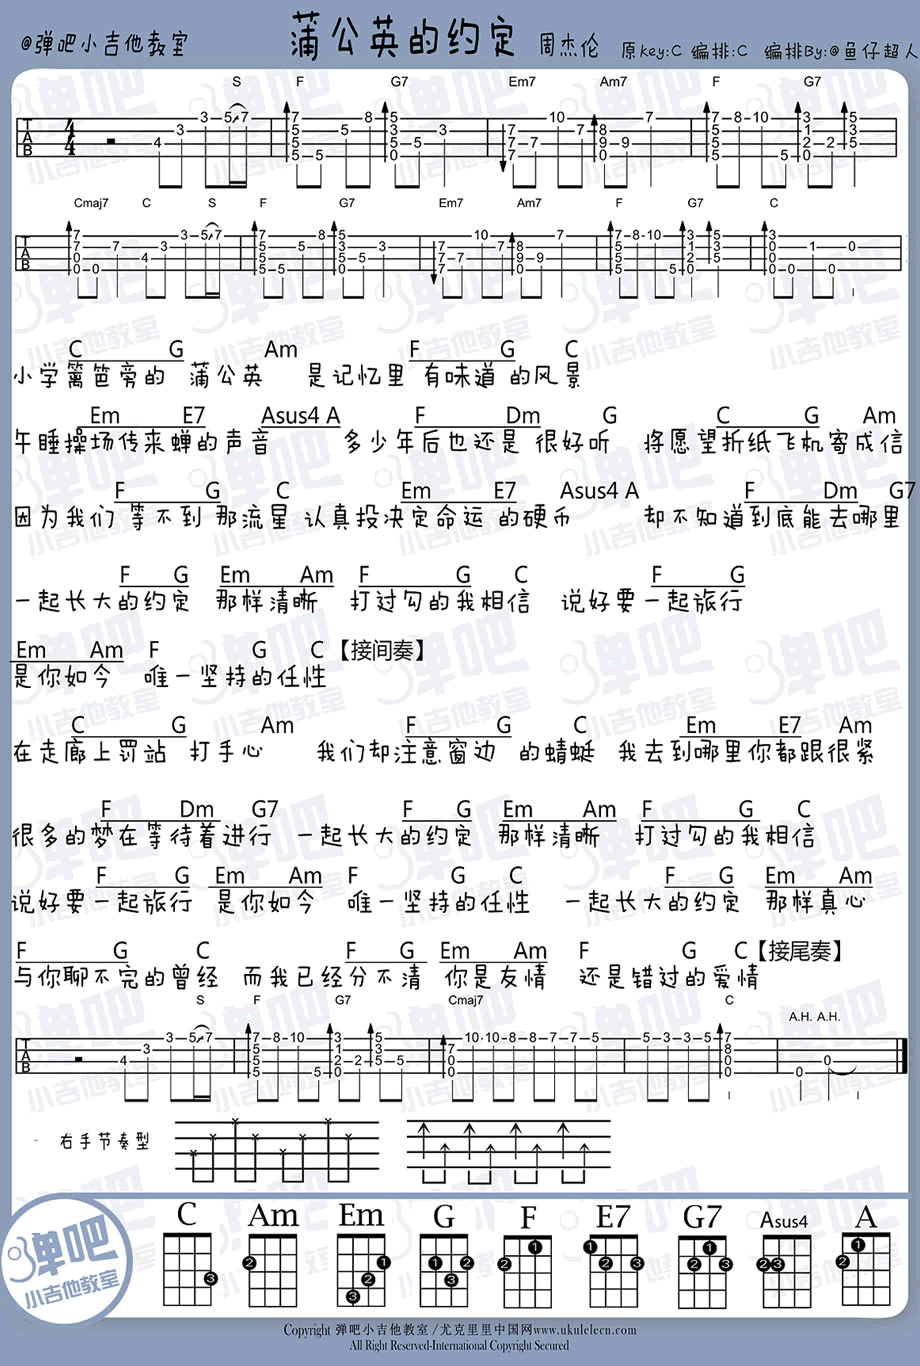 @弹吧小吉他教室 蒲公英的约定 周杰伦 原Key:C 编排:C 编排By:@鱼仔超人
S F G7 Em7 Am7 F G7
Cmaj7 C S F G7 Em7 Am7 F G7 C
C G Am F G C
小学篱笆旁的 蒲公英 是记忆里 有味道 的风景
Em E7 Asus4 A F Dm G C G Am
午睡操场传来蝉的声音 多少年后也还是 很好听 将愿望折纸飞机寄成信
F G C Em E7 Asus4 A F Dm G7
因为我们 等不到 那流星 认真投决定命运 的硬币 却不知道到底能去哪里
F G Em Am F G C F G
一起长大的约定 那样清晰 打过勾的我相信 说好要一起旅行
Em Am F G C【接间奏】
是你如今 唯一坚持的任性
C G Am F G C Em E7 Am
在走廊上罚站 打手心 我们却注意窗边 的蜻蜓 我去到哪里你都跟很紧
F Dm G7 F G Em Am F G C
很多的梦在等待着进行 一起长大的约定 那样清晰 打过勾的我相信
F G Em Am F G C F G Em Am
说好要一起旅行 是你如今 唯一坚持的任性 一起长大的约定 那样真心
F G C F G Em Am F G C【接尾奏】
与你聊不完的曾经 而我已经分不清 你是友情 还是错过的爱情
S F G7 Cmaj7 C A.H. A.H.
右手节奏型
C Am Em G F E7 G7 Asus4 A
弹吧
小吉他教室
Copyright 弹吧小吉他教室/尤克里里中国网www.ukulelecn.com
All Right Reserved-International Copyright Secured